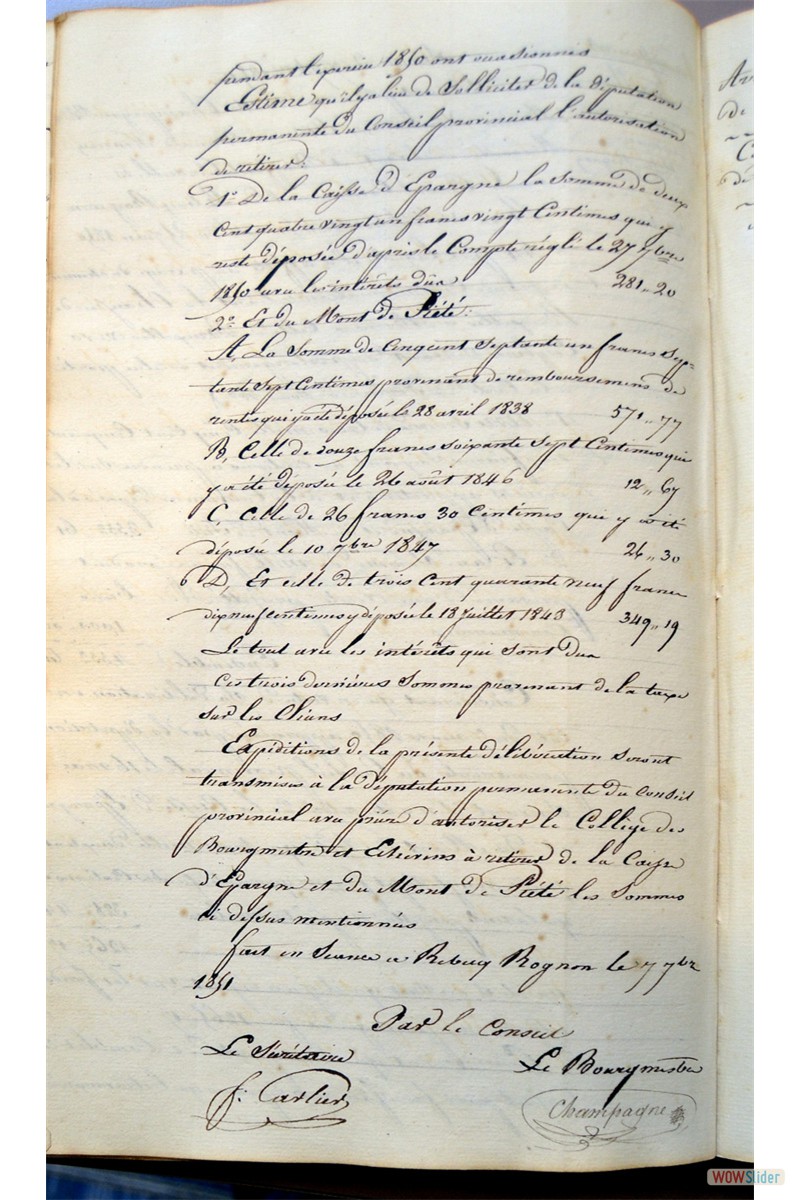 pendant l'exercice 1850 ont occasionnés
Estime qu'il y a lieu de Solliciter de la députation
permanente du Conseil provincial l'autorisation
de retirer:
1° De la Caisse d'Epargne la Somme de deux
Cent quatre vingt un francs vingt Centimes qui y
reste déposée d'après le Compte réglé le 27 7bre
1850 avec les intérêts dûs 281,,20
2° Et du Mont de Piété:
A, La Somme de Cinq cent Septante un francs Sep-
tante Sept Centimes provenant de remboursemens de
rentes qui y a été déposée le 28 avril 1838 571,,77
B, Celle de douze francs Soixante Sept Centimes qui
y a été déposée le 26 août 1846 12,,67
C, Celle de 26 francs 30 Centimes qui y a été
déposée le 10 7bre 1847 26,,30
D, Et celle de trois Cent quarante neuf francs
dix neuf centimes y déposée le 18 Juillet 1843 349,,19
Le tout avec les intérêts qui sont dus
Ces trois dernières Sommes provenant de la taxe
sur les Chiens
Expéditions de la présente délibération Seront
transmises à la députation permanente du Conseil
provincial avec prière d'autoriser le Collège des
Bourgmestre et Echevins à retirer de la Caisse
d'Epargne et du Mont de Piété les Sommes
ci dessus mentionnées
fait en Seance a Rebecq Rognon le 7 7bre
1851
Par le Conseil
Le Sécrétaire
Le Bourgmestre
f: Carlier
Champagne
WOWSlider